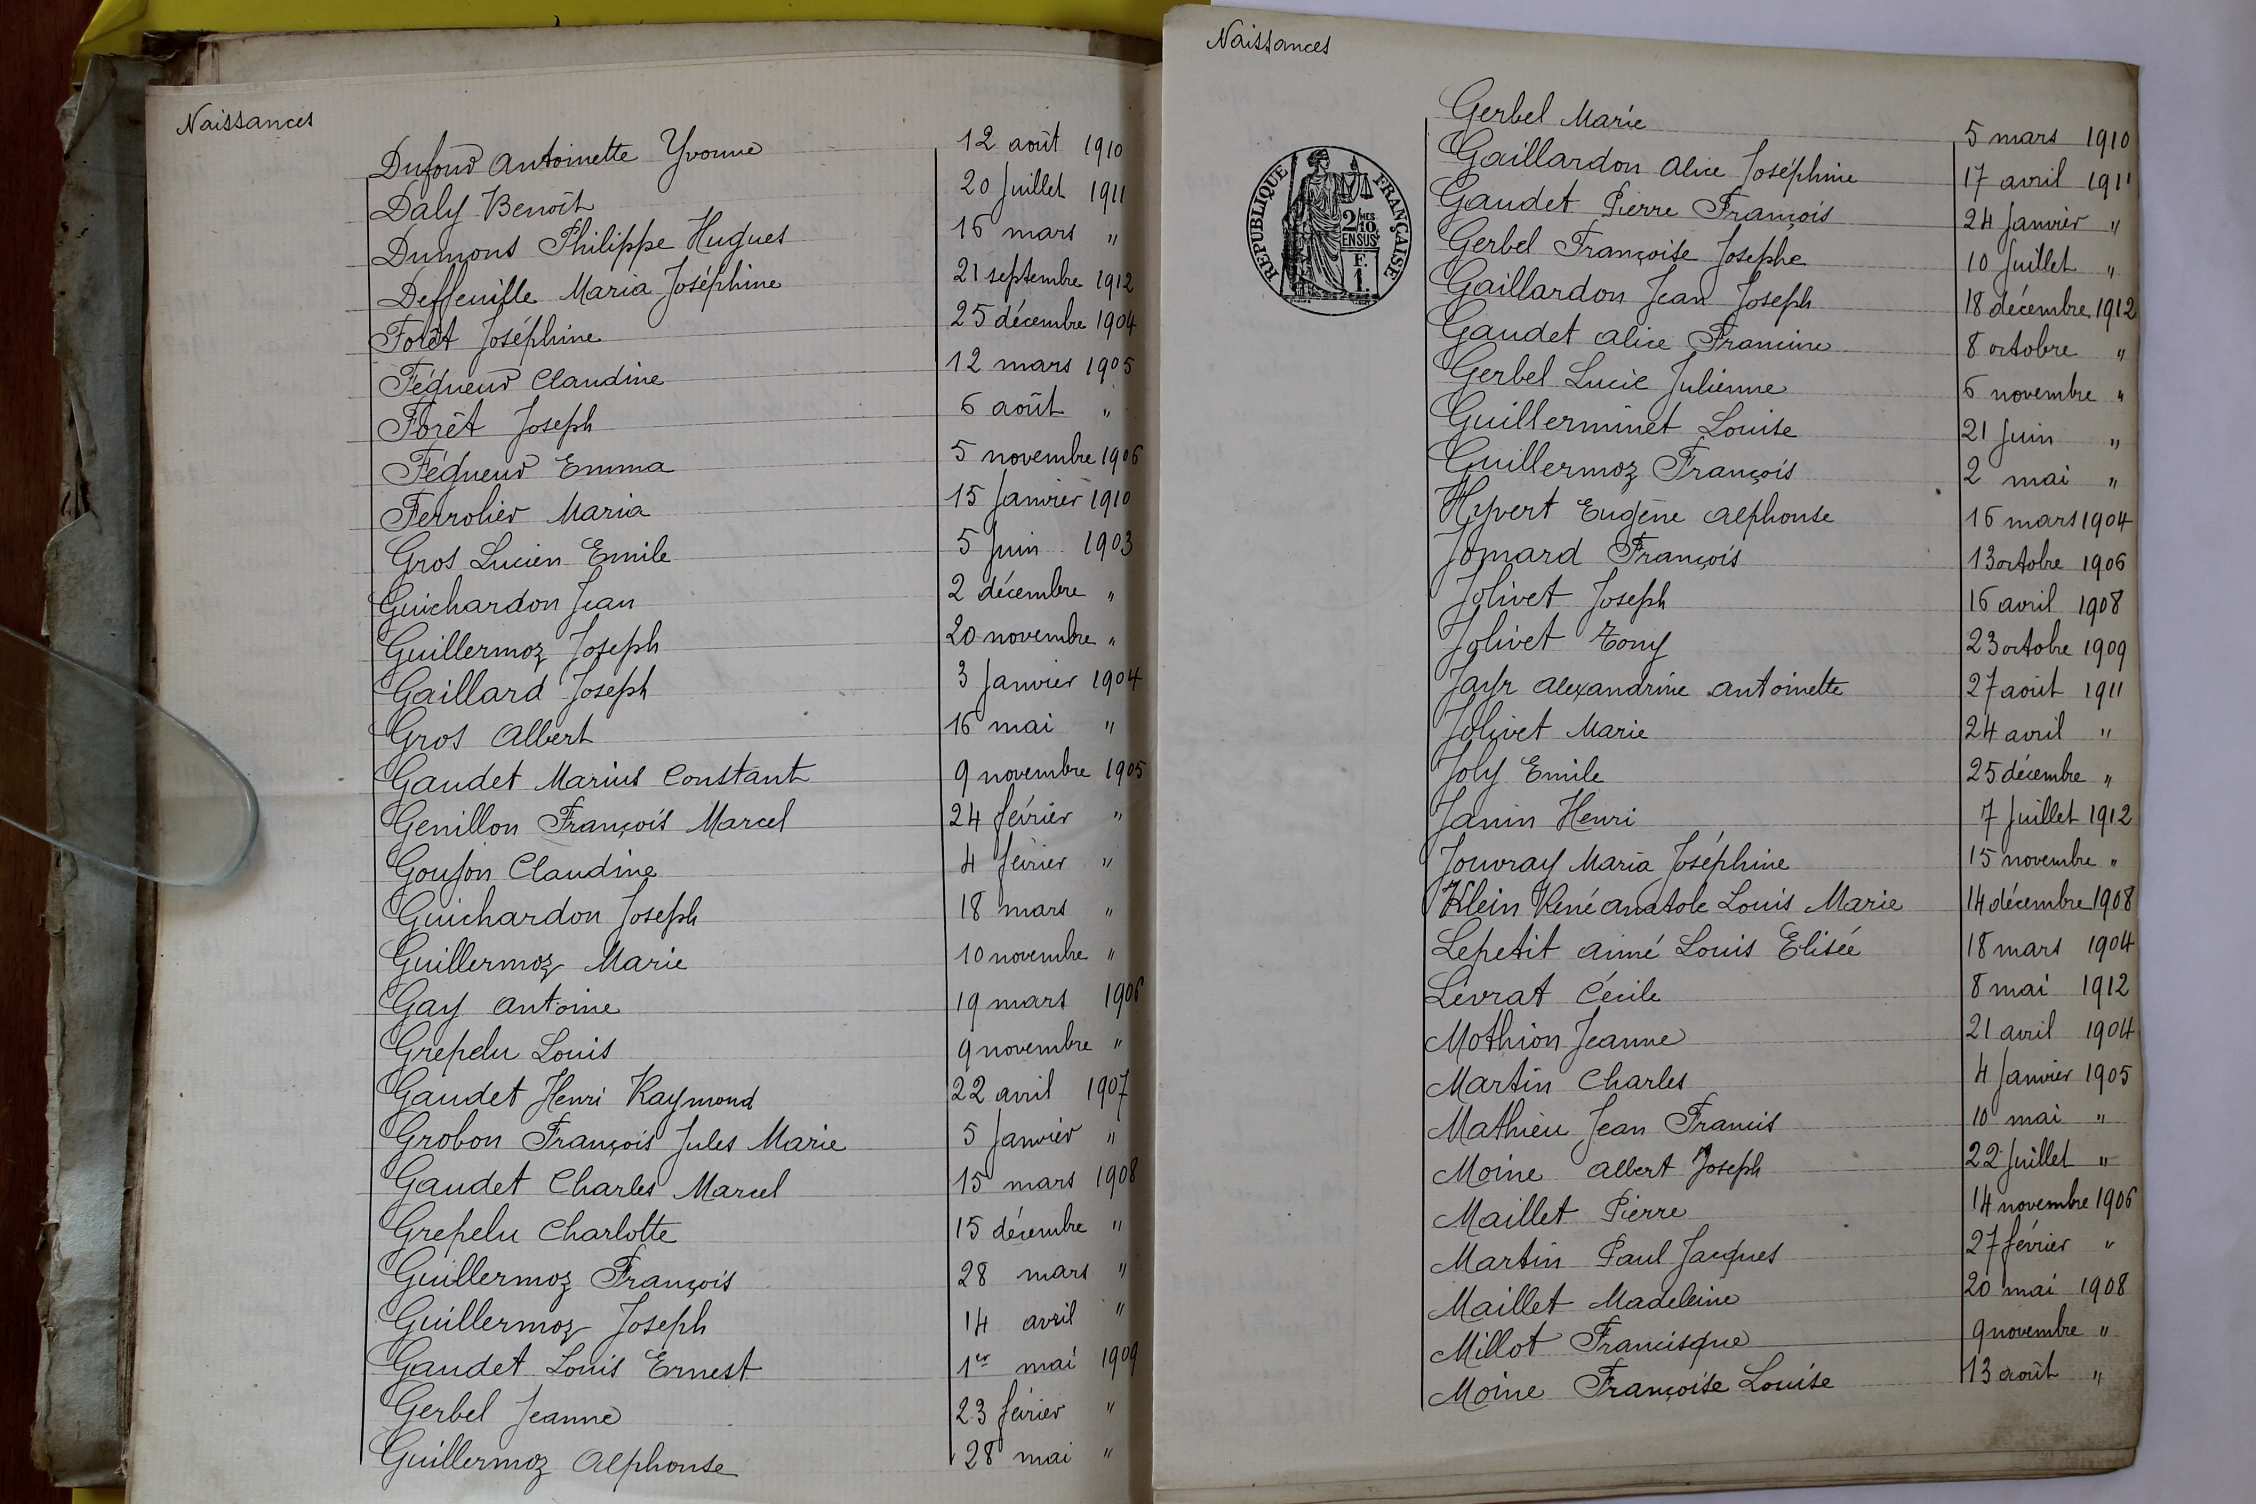 Naissances
Dufour Antoinette Yvonne 12 août 1910
Daly Benoît 20 Juillet 1911
Dumons Philippe Hugues 16 mars "
Deffeuille Maria Joséphine 21 septembre 1912
Forêt Joséphine 25 décembre 1904
Fégueur Claudine 12 mars 1905
Forêt Joseph 6 août "
Fégueur Emma 5 novembre 1906
Ferrolier Maria 15 Janvier 1910
Gros Lucien Emile 5 Juin 1903
Guichardon Jean 2 décembre "
Guillermoz Joseph 20 novembre "
Gaillard Joseph 3 Janvier 1904
Gros Albert 16 mai "
Gaudet Marius Constant 9 novembre 1905
Genillon François Marcel 24 février "
Goujon Claudine 4 février "
Guichardon Joseph 18 mars "
Guillermoz Marie 10 novembre "
Gay Antoine 19 mars 1906
Grepelu Louis 9 novembre "
Gaudet Henri Raymond 22 avril 1907
Grobon François Jules Marie 5 Janvier "
Gaudet Charles Marcel 15 mars 1908
Grepelu Charlotte 15 décembre "
Guillermoz François 28 mars "
Guillermoz Joseph 14 avril "
Gaudet Louis Ernest 1er mai 1909
Gerbel Jeanne 23 février "
Guillermoz Alphonse 28 mai "
Naissances
REPUBLIQUE FRANÇAISE
2/MES
10.
EN SUS
F.
1.
Gerbel Marie 5 mars 1910
Gaillardon Alice Joséphine 17 avril 1911
Gaudet Pierre François 24 Janvier "
Gerbel Françoise Josephe 10 Juillet "
Gaillardon Jean Joseph 18 décembre 1912
Gaudet Alice Francine 8 octobre "
Gerbel Lucie Julienne 6 novembre "
Guillerminet Louise 21 Juin "
Guillermoz François 2 mai "
Hyvert Eugène Alphonse 16 mars 1904
Jomard François 13 octobre 1906
Jolivet Joseph 16 avril 1908
Jolivet Tony 23 octobre 1909
Jayr Alexandrine Antoinette 27 août 1911
Jolivet Marie 24 avril "
Joly Emile 25 décembre "
Janin Henri 7 Juillet 1912
Jouvray Maria Joséphine 15 novembre "
Klein René Anatole Louis Marie 14 décembre 1908
Lepetit Aimé Louis Elisée 18 mars 1904
Levrat Cécile 8 mai 1912
Mothion Jeanne 21 avril 1904
Martin Charles 4 Janvier 1905
Mathieu Jean Francis 10 mai "
Moine Albert Joseph 22 Juillet "
Maillet Pierre 14 novembre 1906
Martin Paul Jacques 27 février "
Maillet Madeleine 20 mai 1908
Millot Francisque 9 novembre "
Moine Françoise Louise 13 août "